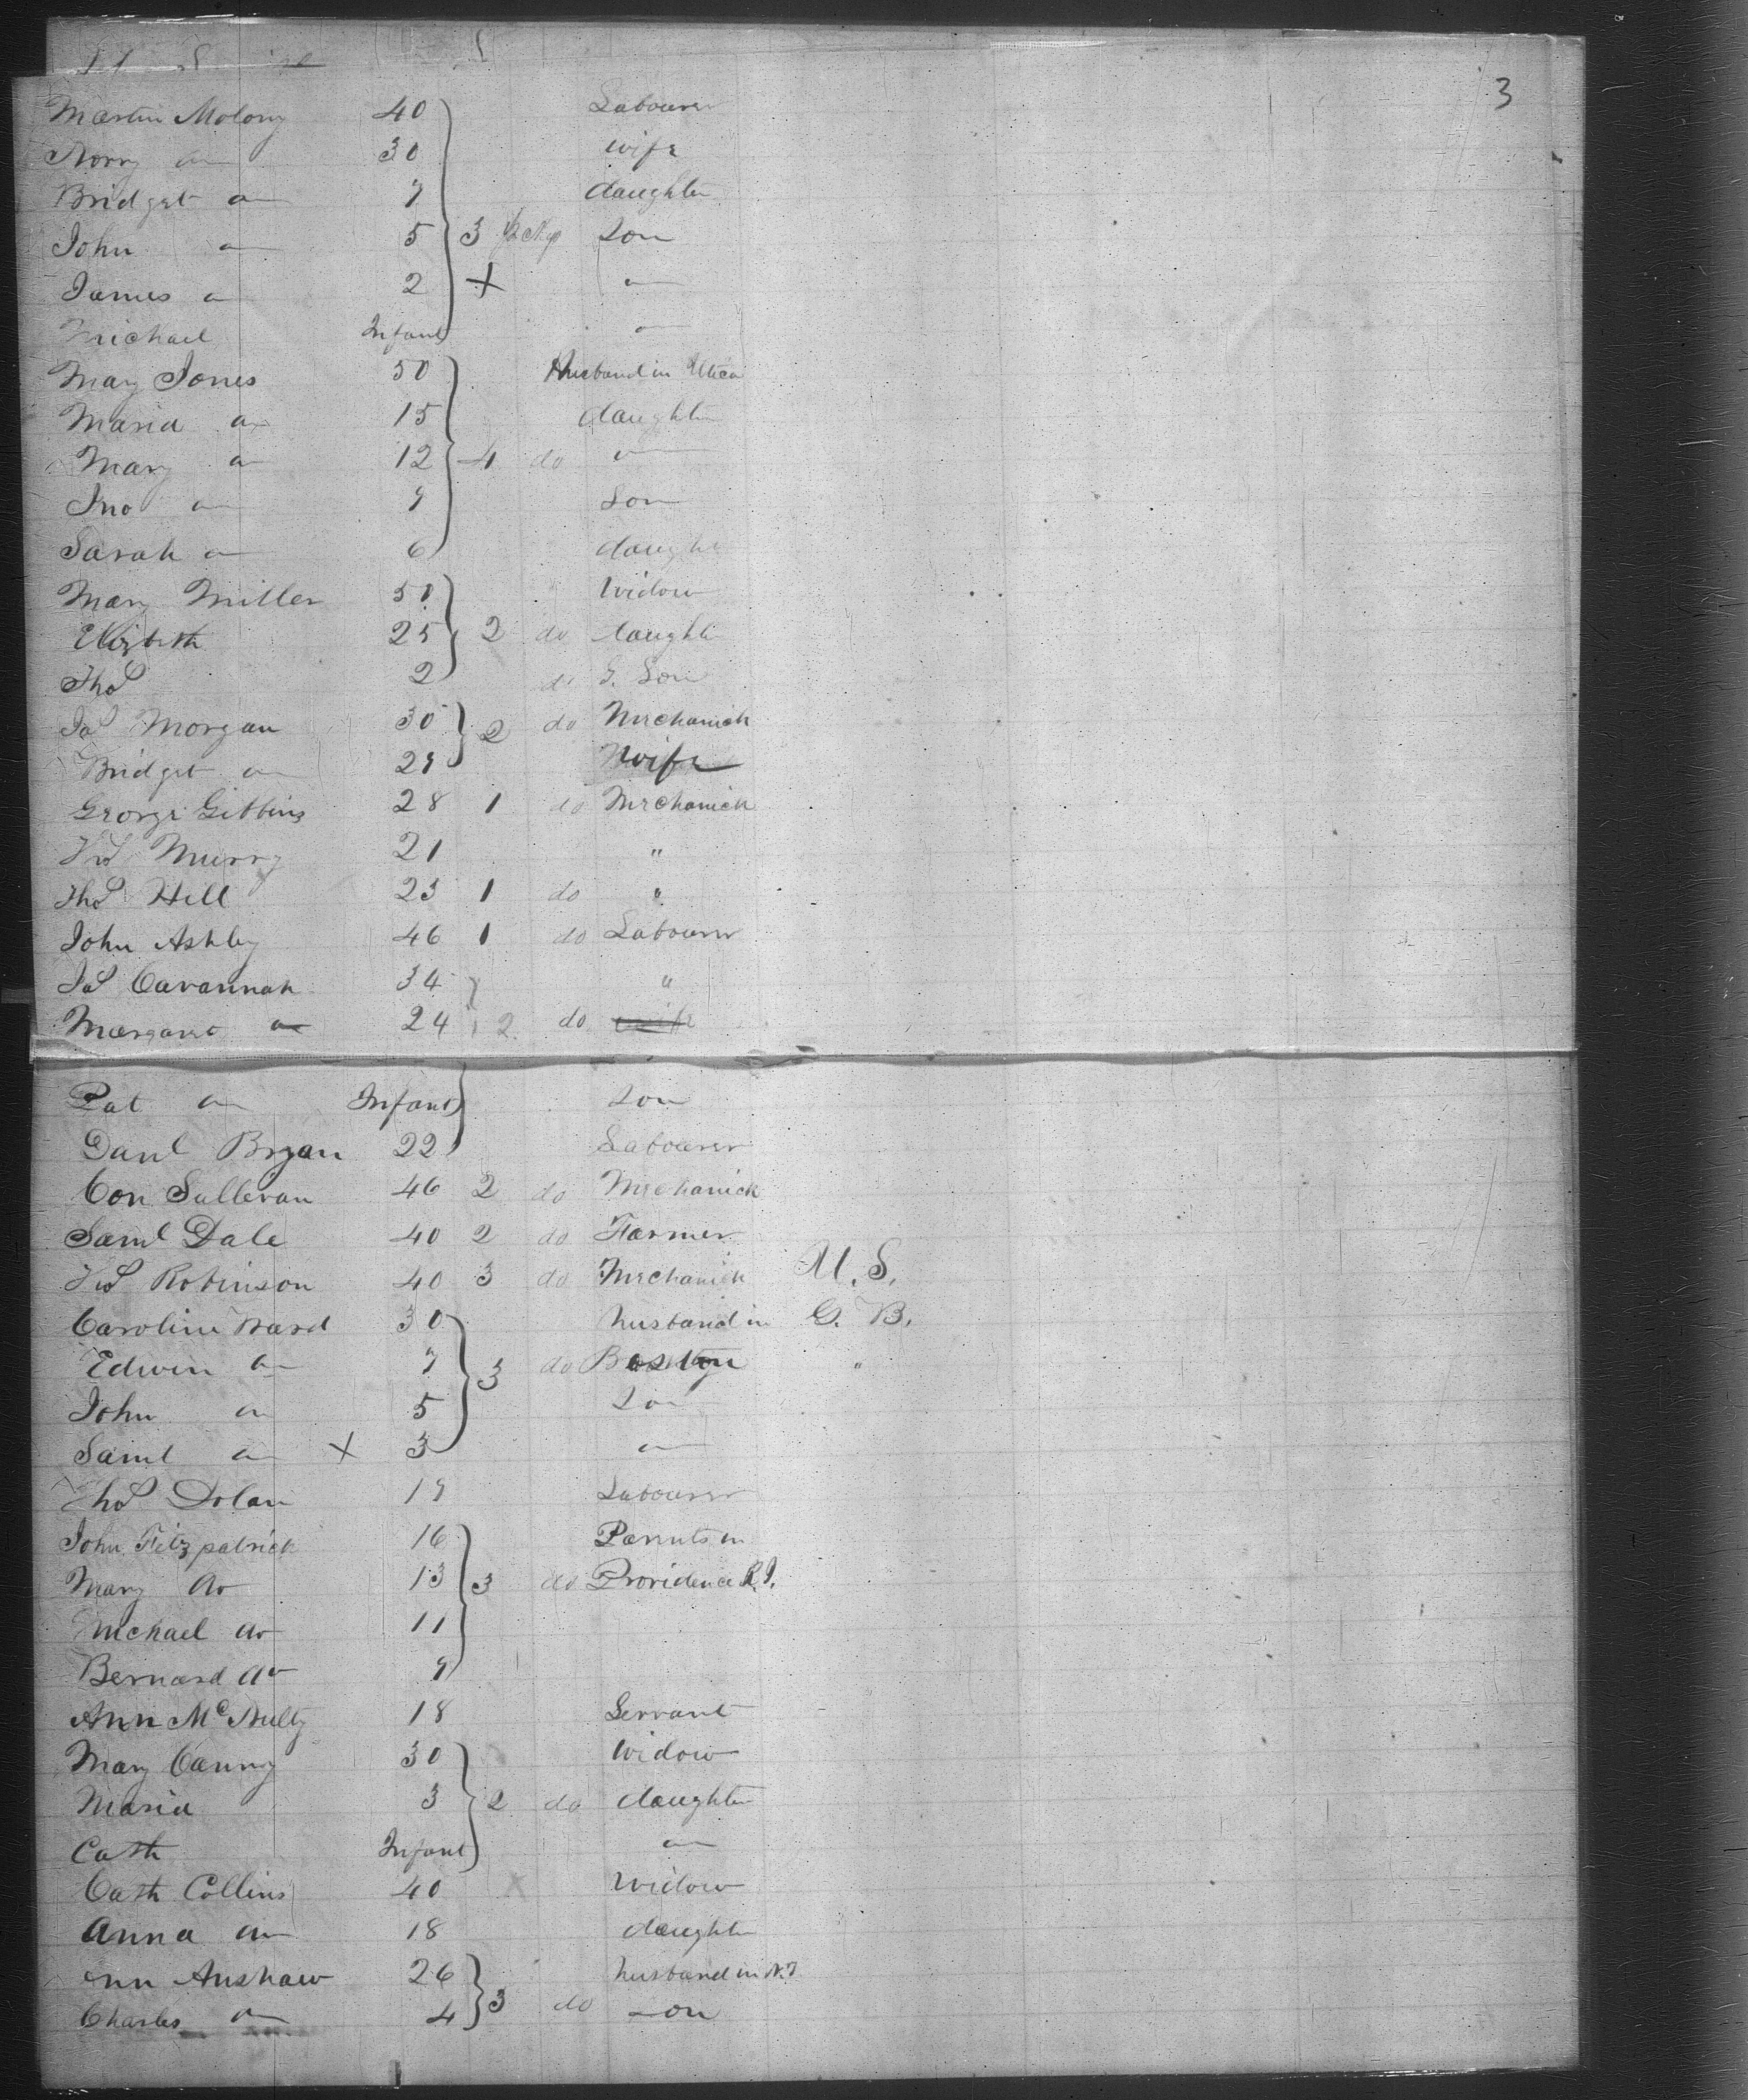 3
Martin Molony 40 Labourer
Nory do 30 wife
Bridget do 7 daughter
John do 5 3 Son
James do 2 + do
Michael Infant do
Mary Jones 50 Husband in Utica
Maria do 15 daughter
Mary do 12 4 do do
Jno do 9 Son
Sarah do 6 daughter
Mary Miller 50 Widow
Elizbeth 25 2 do daughter
Thos 2 do G. Son
Jas Morgan 30 2 do Mechanick
Bridget do 29 Wife
George Gibbins 28 1 do Mechanick
Jas Murry 21 "
Thos Hill 23 1 do "
John Ashby 46 1 do Labourer
Jas Cavannah 34 "
Margaret do 24 2 do wife
Pat do Infant Son
Danl Bryan 22 Labourer
Con Sullevan 46 2 do Mechanick
Saml Dale 40 2 do Farmer
Robinson 40 3 do Mechanick U.S.
Caroline Ward 30 husband in G. B.
Edwin do 7 3 do Boston "
John do 5 Son
Saml do X 3 do
Thos Dolan 19 Labourer
John Fitzpatrick 16 Parents in
Mary do 13 3 do Providence R.I.
Michael do 11
Bernard do 9
Ann McNulty 18 Servant
Mary Canny 30 Widow
Maria 3 2 do daughter
Cath Infant do
Cath Collins 40 X Widow
Anna do 18 daughter
Ann Anshaw 26 husband in N.J
Charles do 4 3 do Son